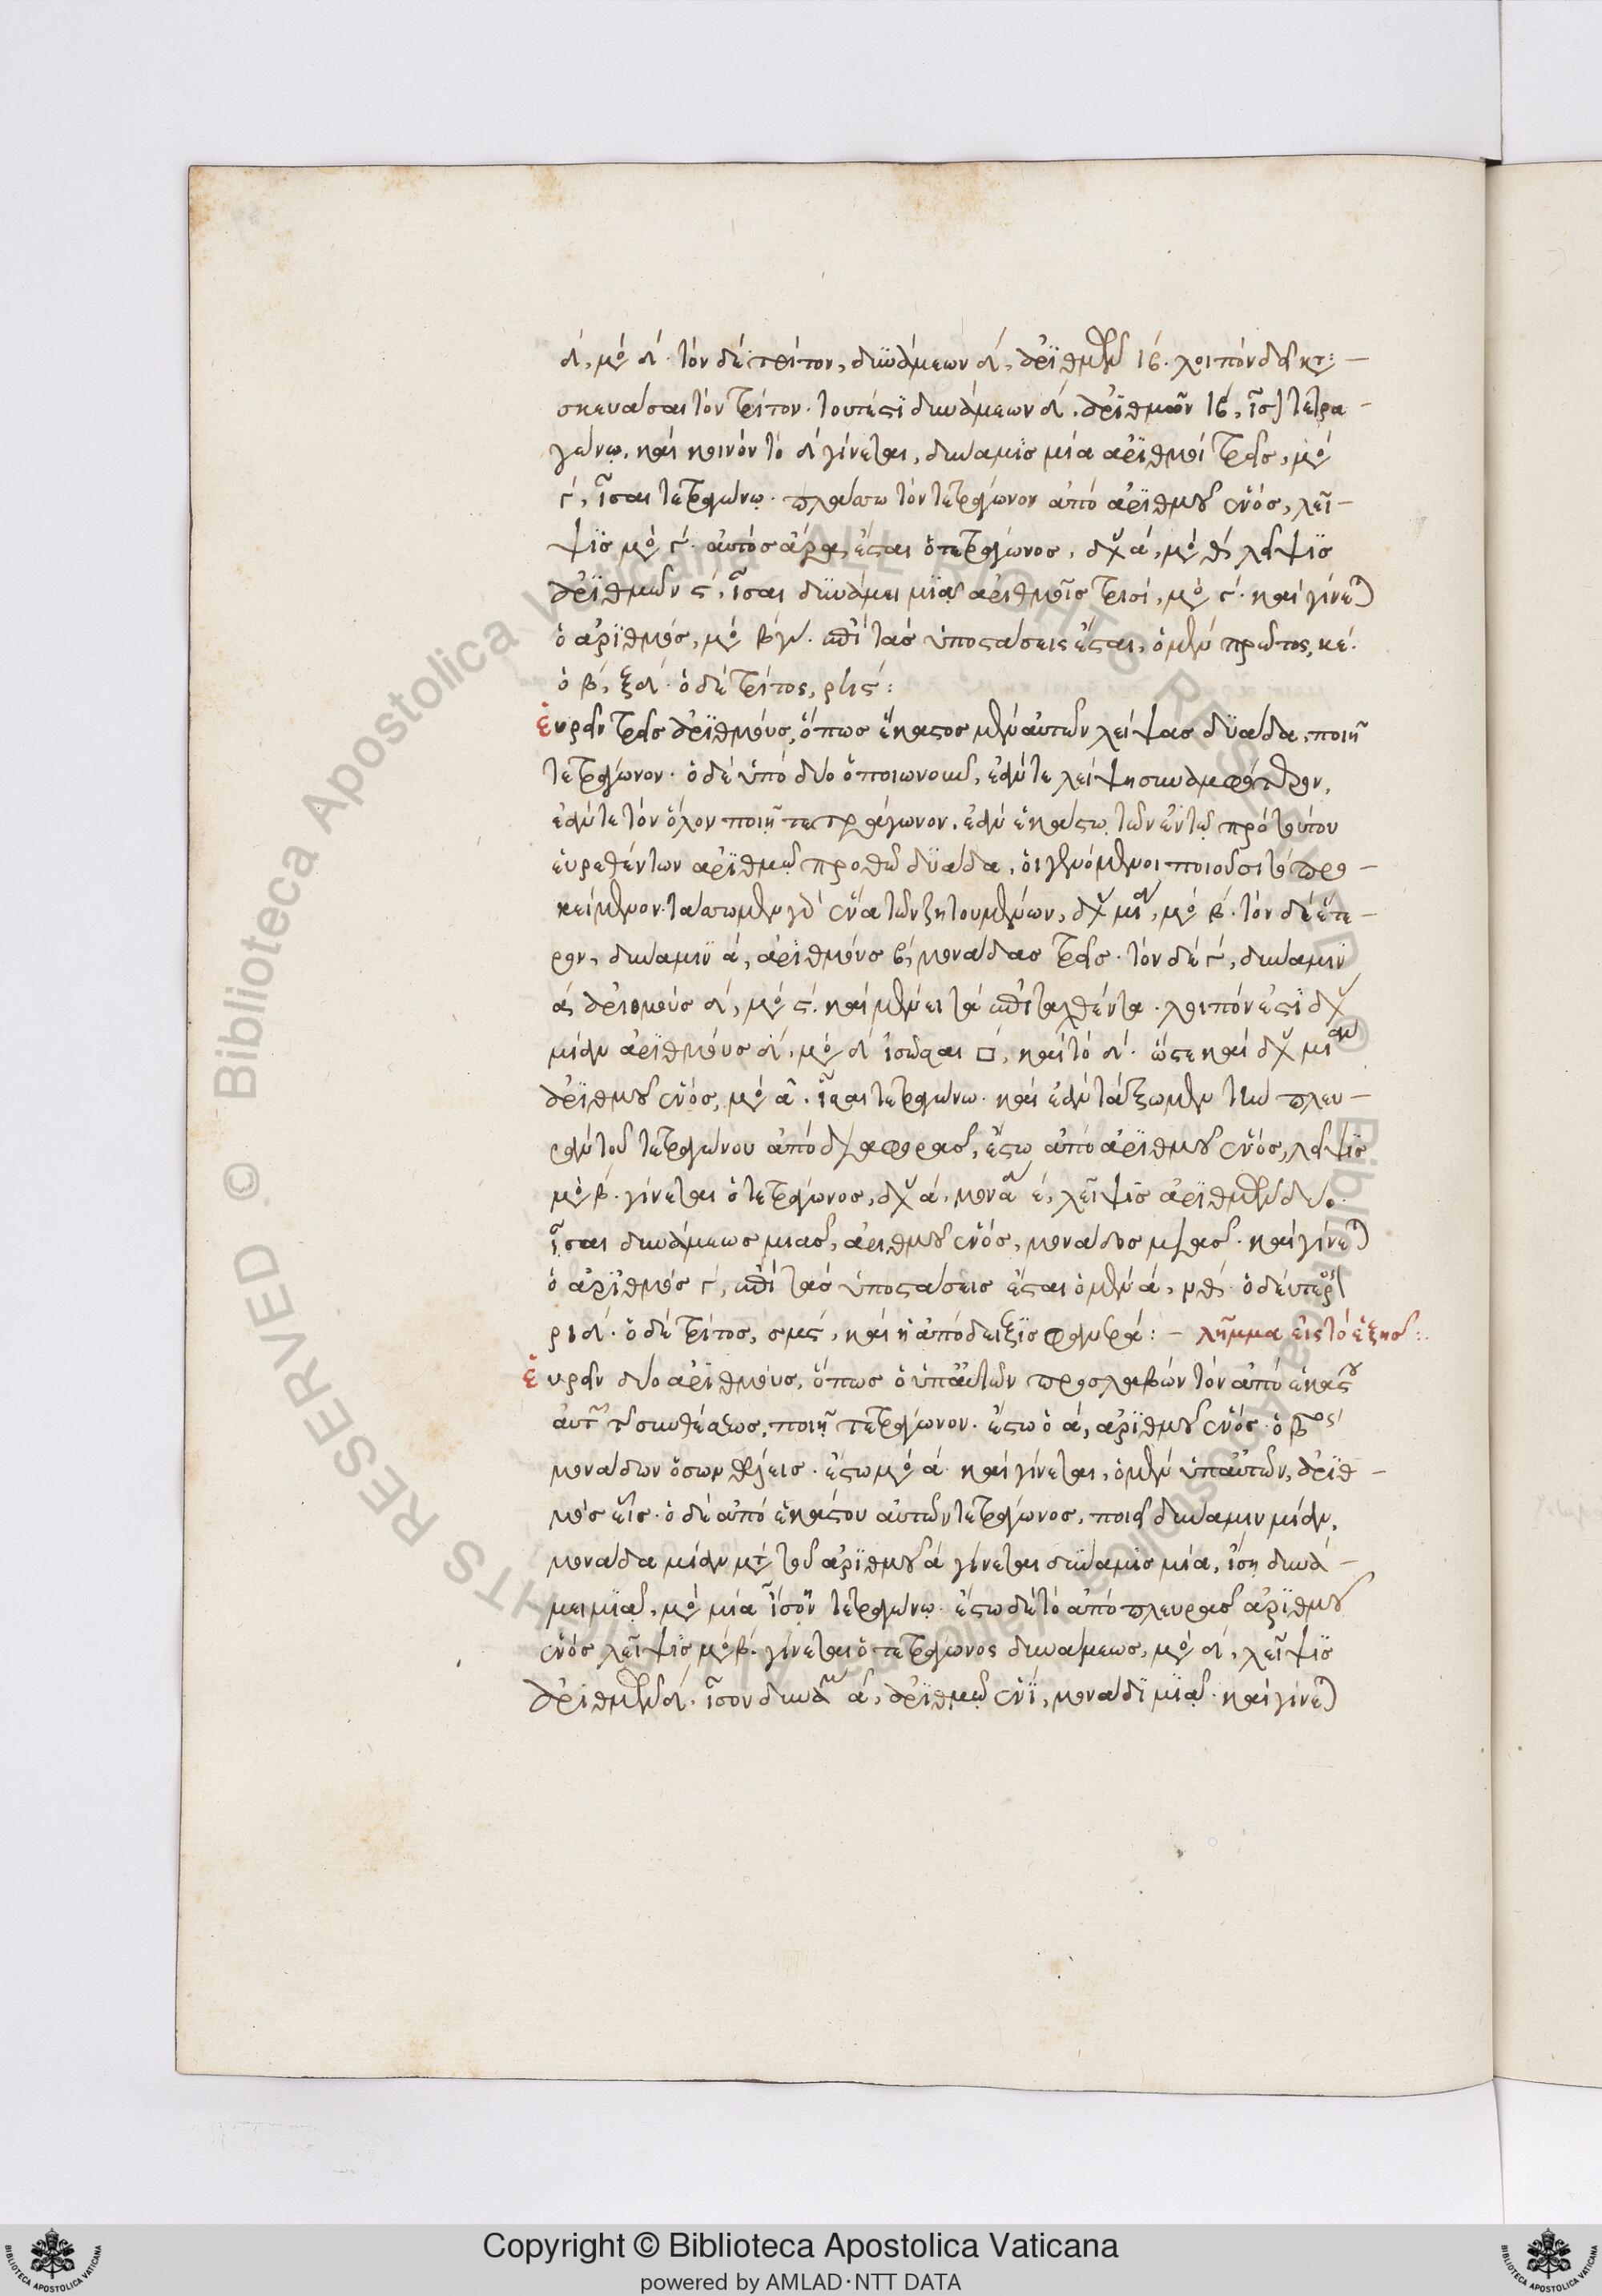 δ́, μο̇ δ́. τὸν δὲ τρίτον, δυνάμεων δ́, ἀριθμῶν ιβ́. λοιπὸν δεῖ κατα-
σκευάσαι τὸν τρίτον. τουτέστι δυνάμεων δ́. ἀριθμῶν ιβ́, ἴσον τετρα-
γώνῳ. καὶ κοινὸν τὸ δ́ γίνεται, δύναμις μία ἀριθμοὶ τρεῖς, μο̇
γ́, ἴσαι τετραγώνῳ. πλάσσω τὸν τετράγωνον ἀπὸ ἀριθμοῦ ἑνός, λεῖ-
ψις μο̇ γ́. αὐτὸς ἄρα ἔσται ὁ τετράγωνος, δυ ά, μο̇ θ́ λείψις
ἀριθμῶν ϛ́, ἴσαι δυνάμει μιᾷ ἀριθμοῖς τρισί, μο̇ γ́. καὶ γίνεται
ὁ ἀριθμός, μο̇ ἐπὶ τὰς ὑποστάσεις ἔσται, ὁ μὲν πρῶτος, κέ.
ὁ β́, ξδ́. ὁ δὲ τρίτος, ρϟϛ́:
εὑρεῖν τρεῖς ἀριθμούς, ὅπως ἕκαστος μὲν αὐτῶν λείψας δυάδα, ποιῇ
τετράγωνον. ὁ δὲ ὑπὸ δύο ὁποιωνοῦν, ἐάν τε λείψῃ συναμφότερον,
ἐάν τε τὸν ὅλον ποιῇ τετράγωνον. ἐὰν ἑκάστῳ τῶν ἐν τῷ πρὸ τούτου
εὑρεθέντων ἀριθμῷ προσθῶ δυάδα, οἱ γενόμενοι ποιοῦσι τὸ προ-
κείμενον. τάσσωμεν γὰρ ἕνα τῶν ζητουμένων, δυ μιαν, μο̇ β́. τὸν δὲ ἕτε-
ρον, δύναμιν ά, ἀριθμοὺς β́, μονάδας τρεῖς. τὸν δὲ γ́, δύναμιν
ά, ἀριθμοὺς δ́, μο̇ ϛ́. καὶ μένει τὰ ἐπιταχθέντα. λοιπὸν ἐστὶ δυ
μίαν ἀριθμοὺς δ́, μο̇ δ́ ἰσῶσαι □, καὶ τὸ δ́. ὥστε καὶ δυ μιαν
ἀριθμοῦ ἑνός, μο̇ ά. ἴσαι τετραγώνω. καὶ ἐὰν τάξωμεν τὴν πλευ-
ρὰν τοῦ τετραγώνου ἀπὸ διαφορᾶς, ἔστω ἀπὸ ἀριθμοῦ ἑνός, λεῖψις
μο̇ β. γίνεται ὁ τετράγωνος, δυ ά, μονα έ, λεῖψις ἀριθμῶν δύο.
ἴσαι δυνάμεως μιᾶς, ἀριθμοῦ ἑνός, μονάδος μιᾶς. καὶ γίνεται
ὁ ἀριθμὸς γ́, ἐπὶ τὰς ὑποστάσεις ἔσται ὁ μὲν ά, ὁ δεύτερος
ριδ́. ὁ δὲ τρίτος, σμϛ́, καὶ ἡ ἀπόδειξις φανερά: - λῆμμα εἰς τὸ ἑξῆς:
εὑρεῖν δύο ἀριθμούς, ὅπως ὁ ὑπ' αὐτῶν προσλαβὼν τὸν ἀπὸ ἑκάστου
αὐτῶν συνθέσεως, ποιῇ τετράγωνον. ἔστω ὁ ά, ἀριθμοῦ ἑνός. ὁ βος
μονάδων ὅσων θέλεις. ἔστω μο̇ ά. καὶ γίνεται, ὁ μὲν ὑπ' αὐτῶν, ἀριθ-
μὸς εἷς. ὁ δὲ ἀπὸ ἑκάστου αὐτῶν τετράγωνος, ποιεῖ δύναμιν μίαν,
μονάδα μίαν μετὰ τοῦ ἀριθμοῦ ά γίνεται δύναμις μία, ἴση δυνά-
μει μιᾷ, μο̇ μία ἴσον τετραγώνῳ. ἔστω δὲ τὸ ἀπὸ πλευρᾶς ἀριθμοῦ
ἑνός λεῖψις μο̇ β́. γίνεται ὁ τετράγωνος δυνάμεως, μο̇ δ́, λεῖψις
ἀριθμῶν δ́. ἴσον δυνάμει ά, ἀριθμῷ ἑνί, μονάδι μιᾷ. καὶ γίνεται